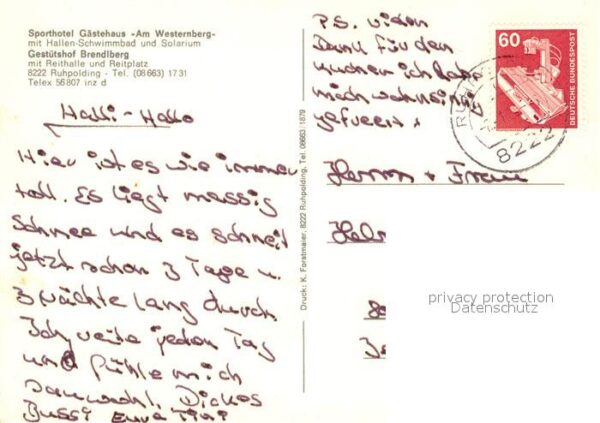 Sporthotel Gästehaus »Am Westernberg«
mit Hallen-Schwimmbad und Solarium
Gestütshof Brendlberg
mit Reithalle und Reitplatz
8222 Ruhpolding - Tel. (08663) 1731
Telex 56807 inz d
Halli-Hallo
Hier ist es wie immer
toll. Es liegt massig
Schnee und es schneit
jetzt schon 3 Tage u.
3 Nächte lang durch.
Ich reite jeden Tag
und fühle mich
sauwohl. Dickes
Bussi Eure
Druck: K. Forstmaier, 8222 Ruhpolding, Tel. 08663/1879
P.S. vielen
Dank für den
Kuchen ich habe
mich wahnsinnig
gefreut
60
DEUTSCHE BUNDESPOST
8222
Herrn + Frau
privacy protection
Datenschutz